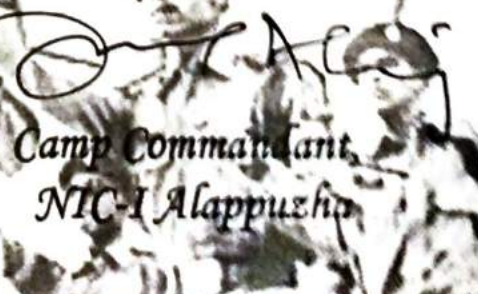 Camp Commandant,
NIC-I Alappuzha